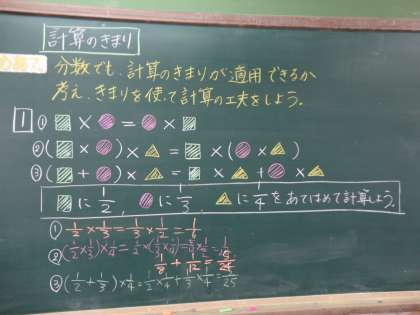 計算のきまり
めあて 分数でも、計算のきまりが適用できるか
考え、きまりを使って計算の工夫をしよう。
1 ① ■×●=●×■
②(■×●)×▲=■×(●×▲)
③(■+●)×▲=■×▲+●×▲
■に1/2、●に1/3、▲に1/4をあてはめて計算しよう。
① 1/2×1/3=1/3×1/2=1/6
②(1/2×1/3)×1/4=1/2×(1/3×1/4)
1/8+1/12=5/24
③(1/2+1/3)×1/4=1/2×1/4+1/3×1/4